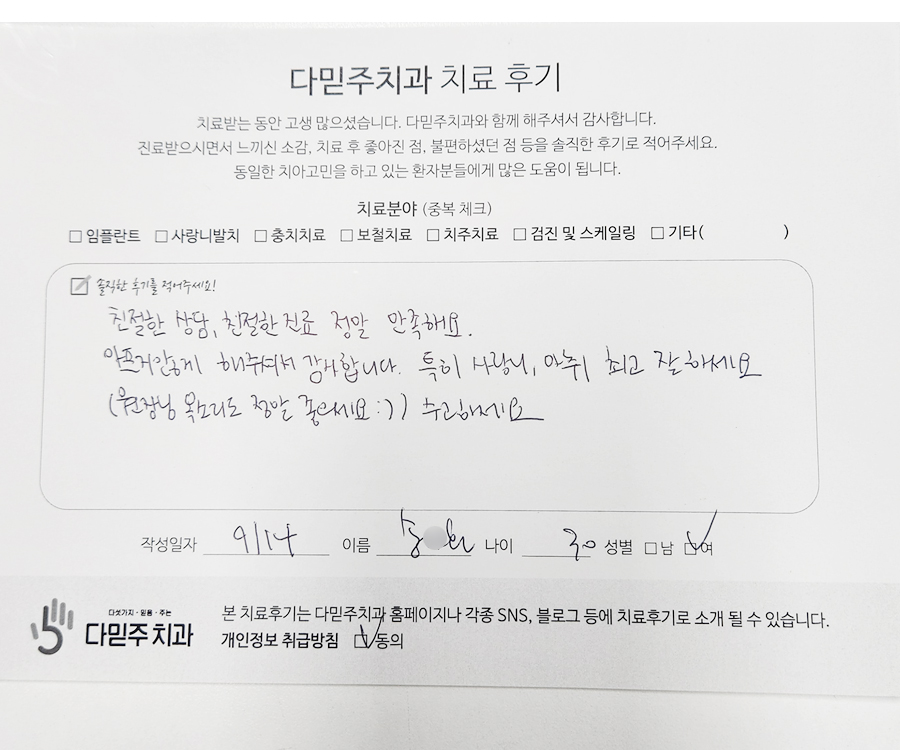 다믿주치과 치료 후기
치료받는 동안 고생 많으셨습니다. 다믿주치과와 함께 해주셔서 감사합니다.
진료받으시면서 느끼신 소감, 치료 후 좋아진 점, 불편하셨던 점 등을 솔직한 후기로 적어주세요.
동일한 치아고민을 하고 있는 환자분들에게 많은 도움이 됩니다.
치료분야 (중복 체크)
□ 임플란트 □ 사랑니발치 □ 충치치료 □ 보철치료 □ 치주치료 □ 검진 및 스케일링 □ 기타( )
솔직한 후기를 적어주세요!
친절한 상담, 친절한 진료 정말 만족해요.
아프지않게 해주셔서 감사합니다. 특히 사랑니, 마취 최고 잘하세요
(원장님 목소리도 정말 좋으세요 :)) 수고하세요
작성일자 9/14 이름 송 나이 30 성별 □남 ☑여
다섯가지·믿음·주는
다믿주치과
본 치료후기는 다믿주치과 홈페이지나 각종 SNS, 블로그 등에 치료후기로 소개 될 수 있습니다.
개인정보 취급방침 ☑동의